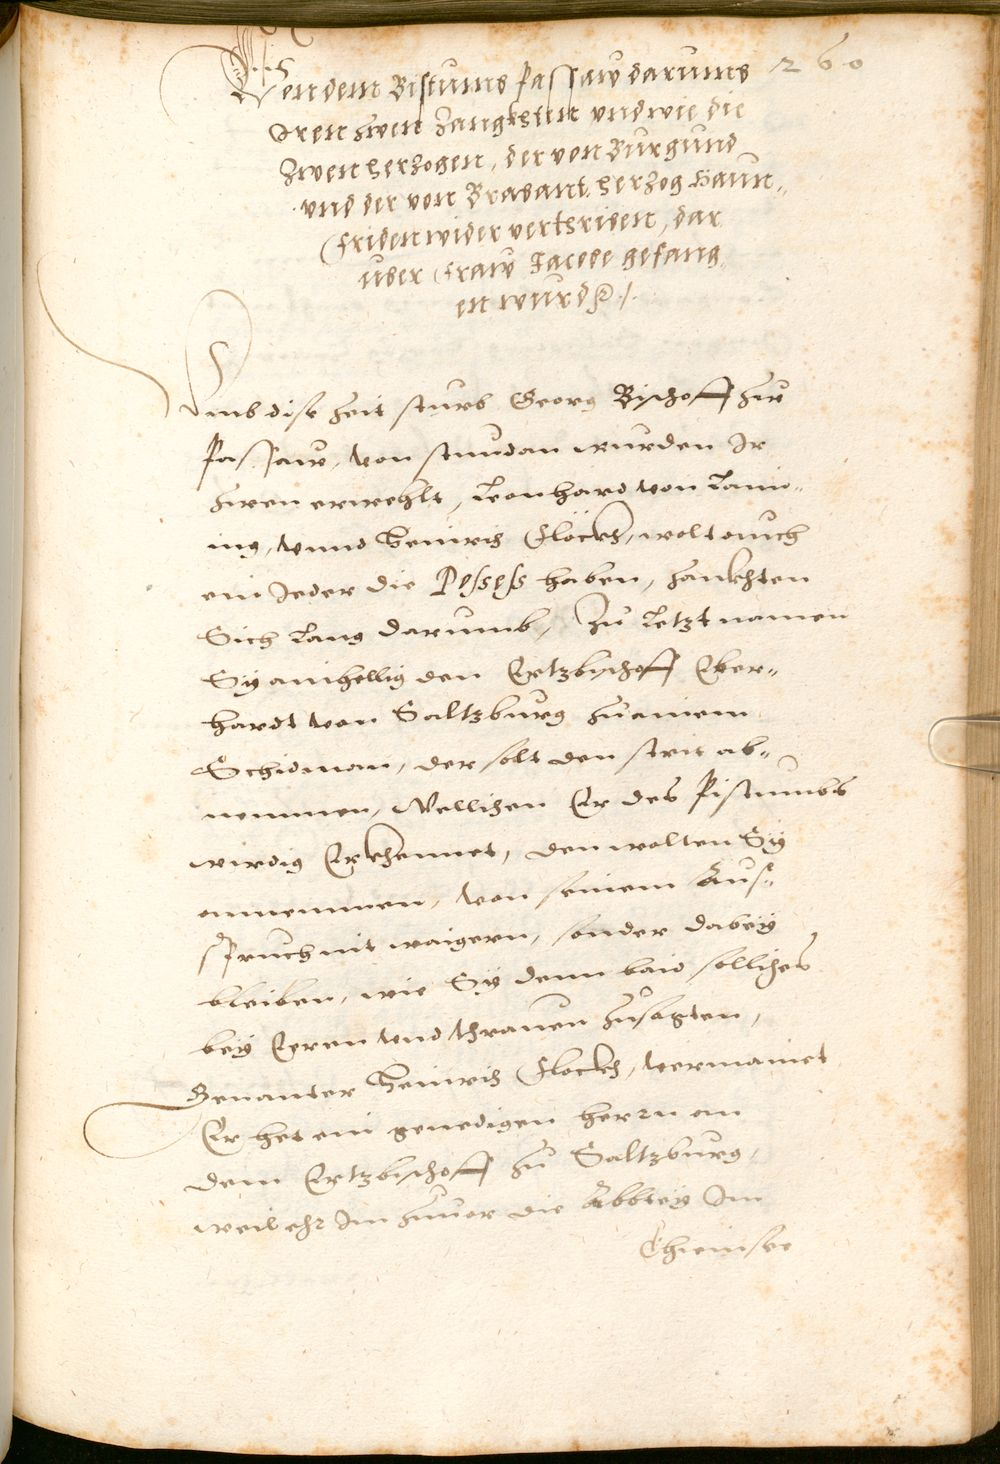 260
Von dem Bistumb Passaw darumb
Iren zwen zangkhtin vnd wie die
zwen herzogen, der von Burgund
vnd der von Brabant, herzog Haun„
friden wider vertriben, dar
uber fraw Jacobe gefang
en wurd ꝛc ./.
Vmb dise Zeit sturb Georg Bischoff zu
Passaw, von stundan wurden Ir
zwen erwehlt, Leonhard von Lain„
ing, vnnd Heinrich Flöckh, wolt auch
ein Jeder die Possess haben, zankhten
Sich Lang darumb, Zu Letzt namen
Sy ainhellig den Ertzbischoff Eber„
hardt von Saltzburg zu ainem
Schidman, der solt den strit ab„
nemmen, Wellichen Er des Pistumbs
wirdig Erkhennet, den wolten Sy
annemmen, von seinem Aus„
spruch nit waigern, sonder dabey
bleiben, wie Sy dann baid solliches
bey Eeren vnd thrauen zusagten,
Genanter Heinrich Flockh, vermainet
Er het ein genedigen herrn an
dem Ertzbischoff zu Saltzburg,
weil ehr Im zuuor die Abbtey Im
Chiemsee